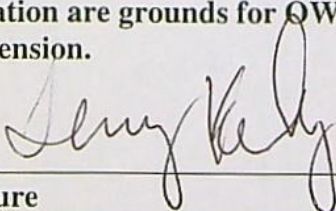 ation are grounds for OW
ension.
ure